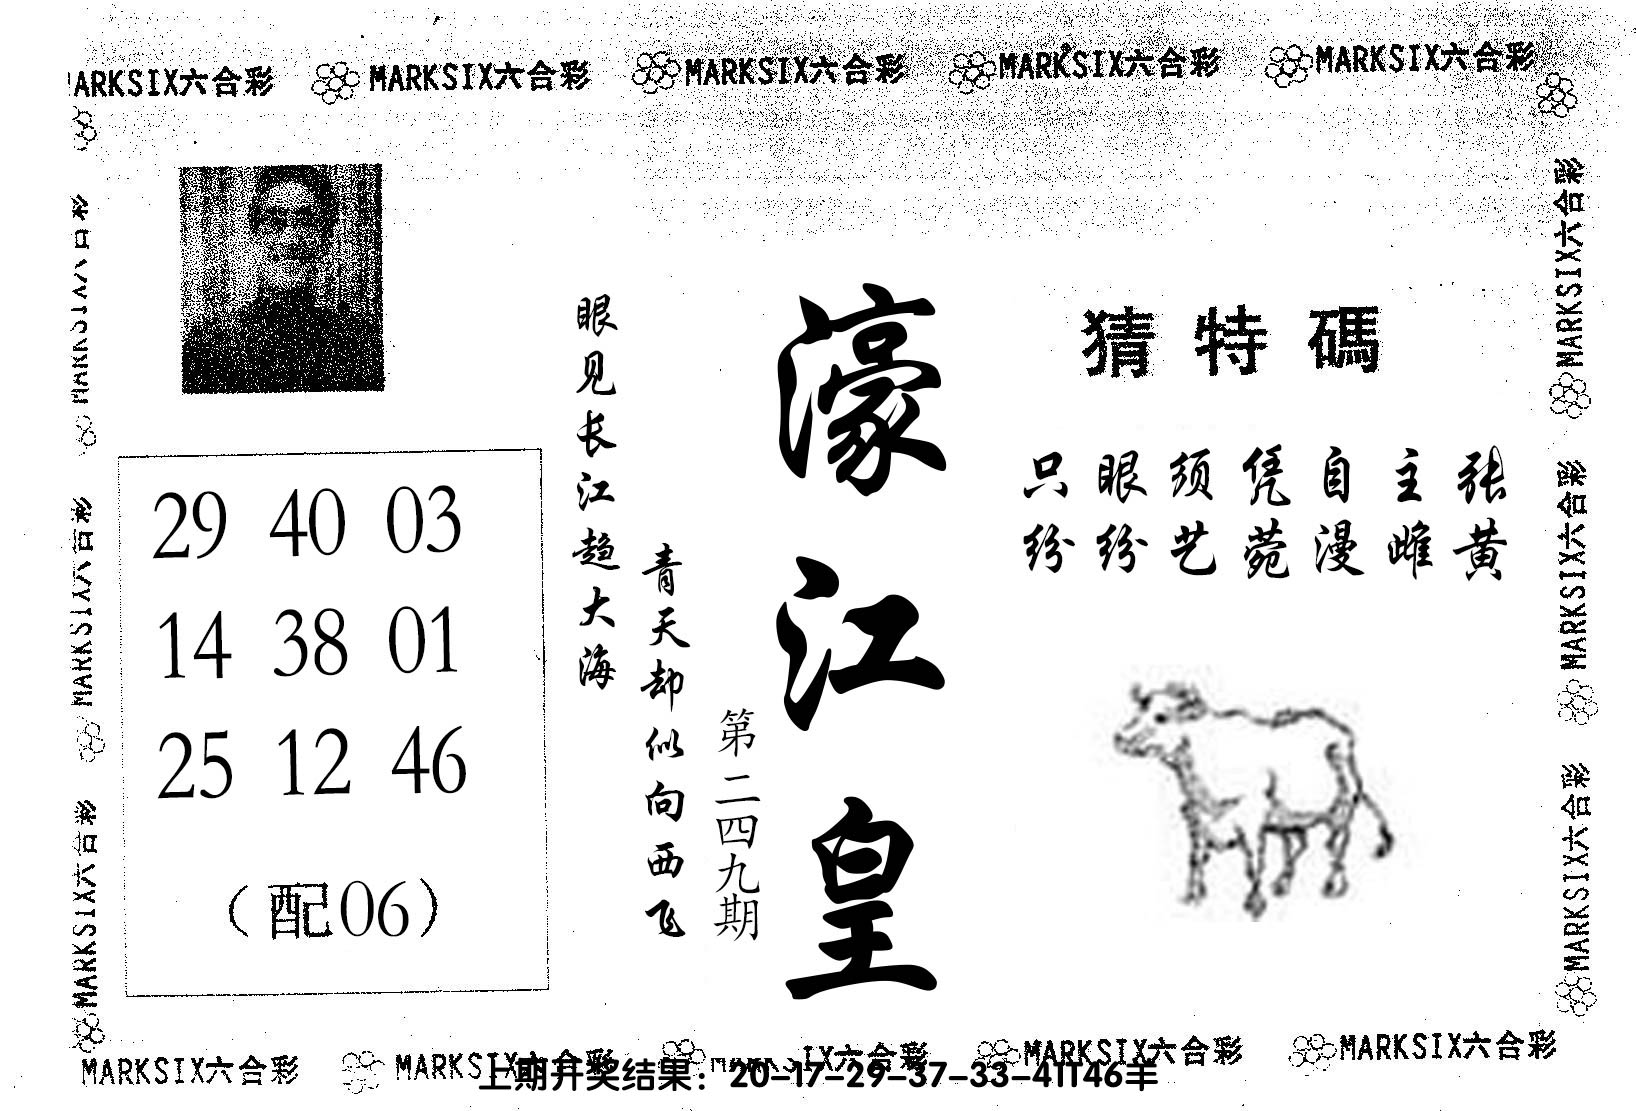 MARKSIX六合彩 MARKSIX六合彩 MARKSIX六合彩 MARKSIX六合彩 MARKSIX六合彩
猜特碼
只眼须凭自主张
纷纷艺苑漫雌黄
濠江皇
第二四九期
眼见长江趋大海
青天却似向西飞
29 40 03
14 38 01
25 12 46
（配06）
MARKSIX六合彩
MARKSIX六合彩
MARKSIX六合彩
MARKSIX六合彩
MARKSIX六合彩
MARKSIX六合彩
MARKSIX六合彩 MARKSIX六合彩 MARKSIX六合彩 MARKSIX六合彩 MARKSIX六合彩
上期开奖结果：20-17-29-37-33-41T46羊